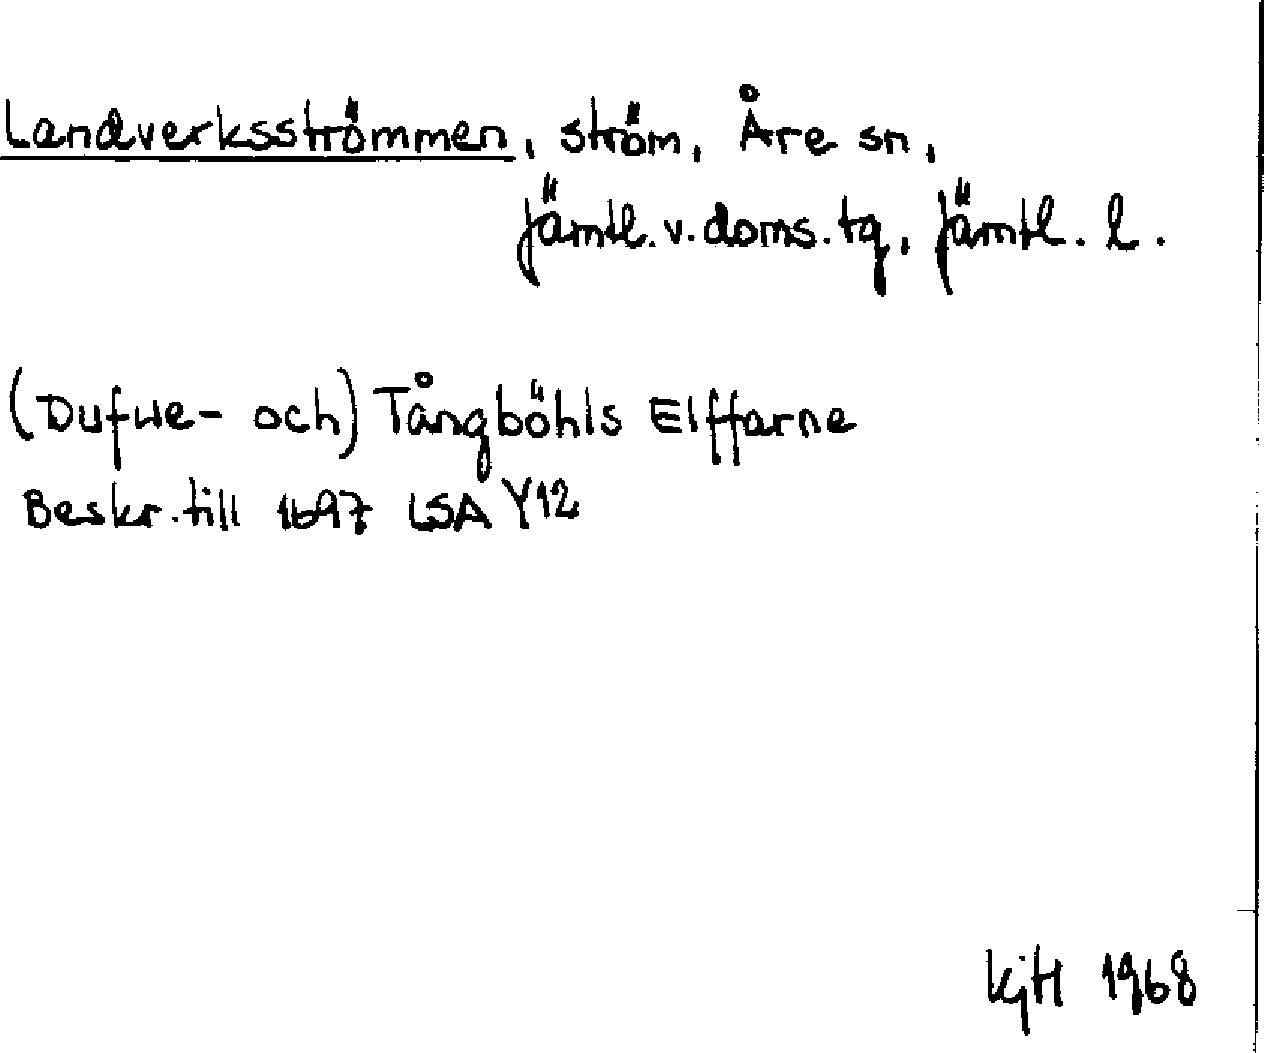 Landverksströmmen, ström, Åre sn,
Jämtl. v. doms. tg, Jämtl. l.
(Dufwe- och) Tångböhls Elffarne
Beskr. till 1697 LSA Y12
KjH 1968